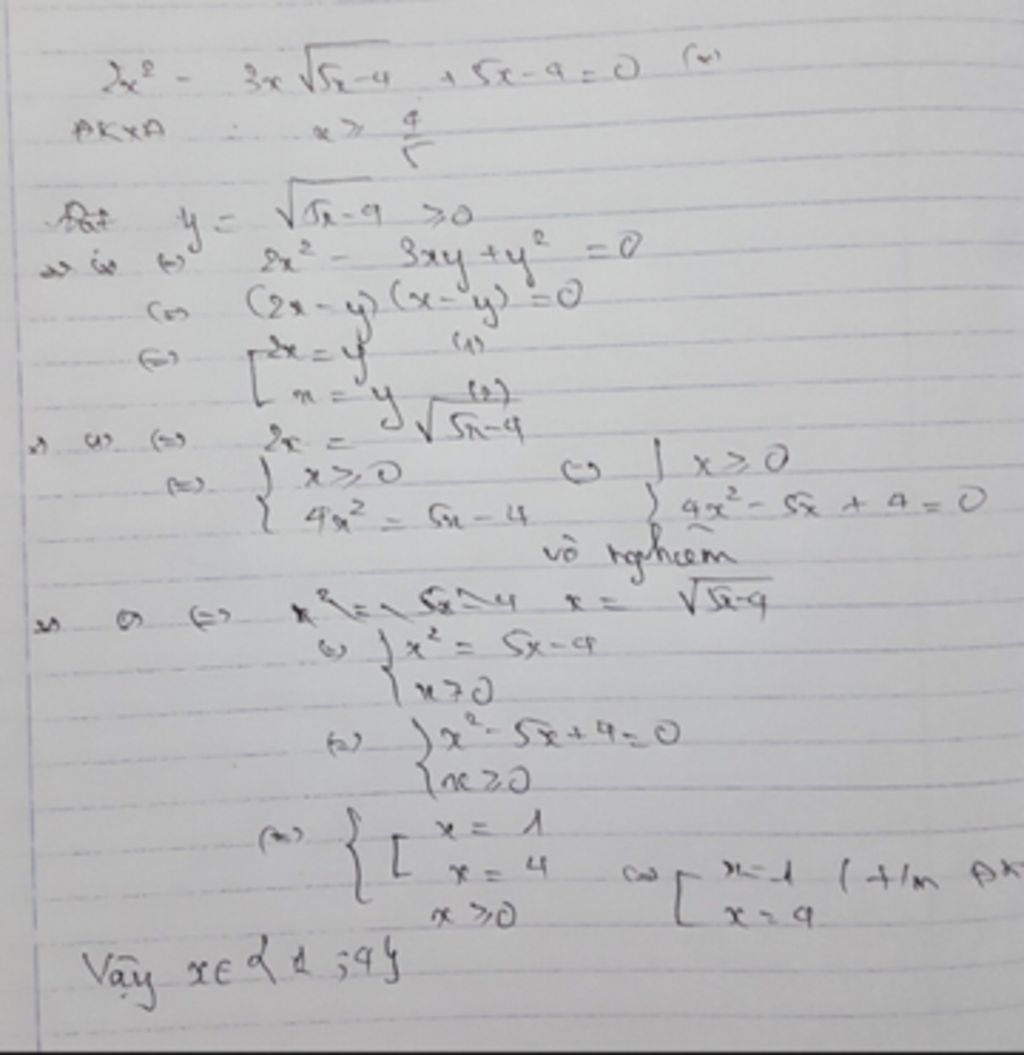 2x² - 3x √5x-4 + 5x-4 = 0 (*)
ĐKXĐ : x ≥ 4/5
Đặt y = √5x-4 ≥ 0
(*) (=) 2x² - 3xy + y² = 0
(=) (2x - y) (x - y) = 0
(=) [ 2x = y (1)
x = y (2)
(1) (=) 2x = √5x-4
(=) { x ≥ 0 (=) { x ≥ 0
4x² = 5x - 4 4x² - 5x + 4 = 0
vô nghiệm
(2) (=) x = √5x-4
(=) { x² = 5x-4
x ≥ 0
(=) { x² - 5x + 4 = 0
x ≥ 0
(=) { [ x = 1
x = 4 (=) [ x = 1 ( t/m ĐK
x ≥ 0 x = 4
Vậy x ∈ { 1 ; 4 }